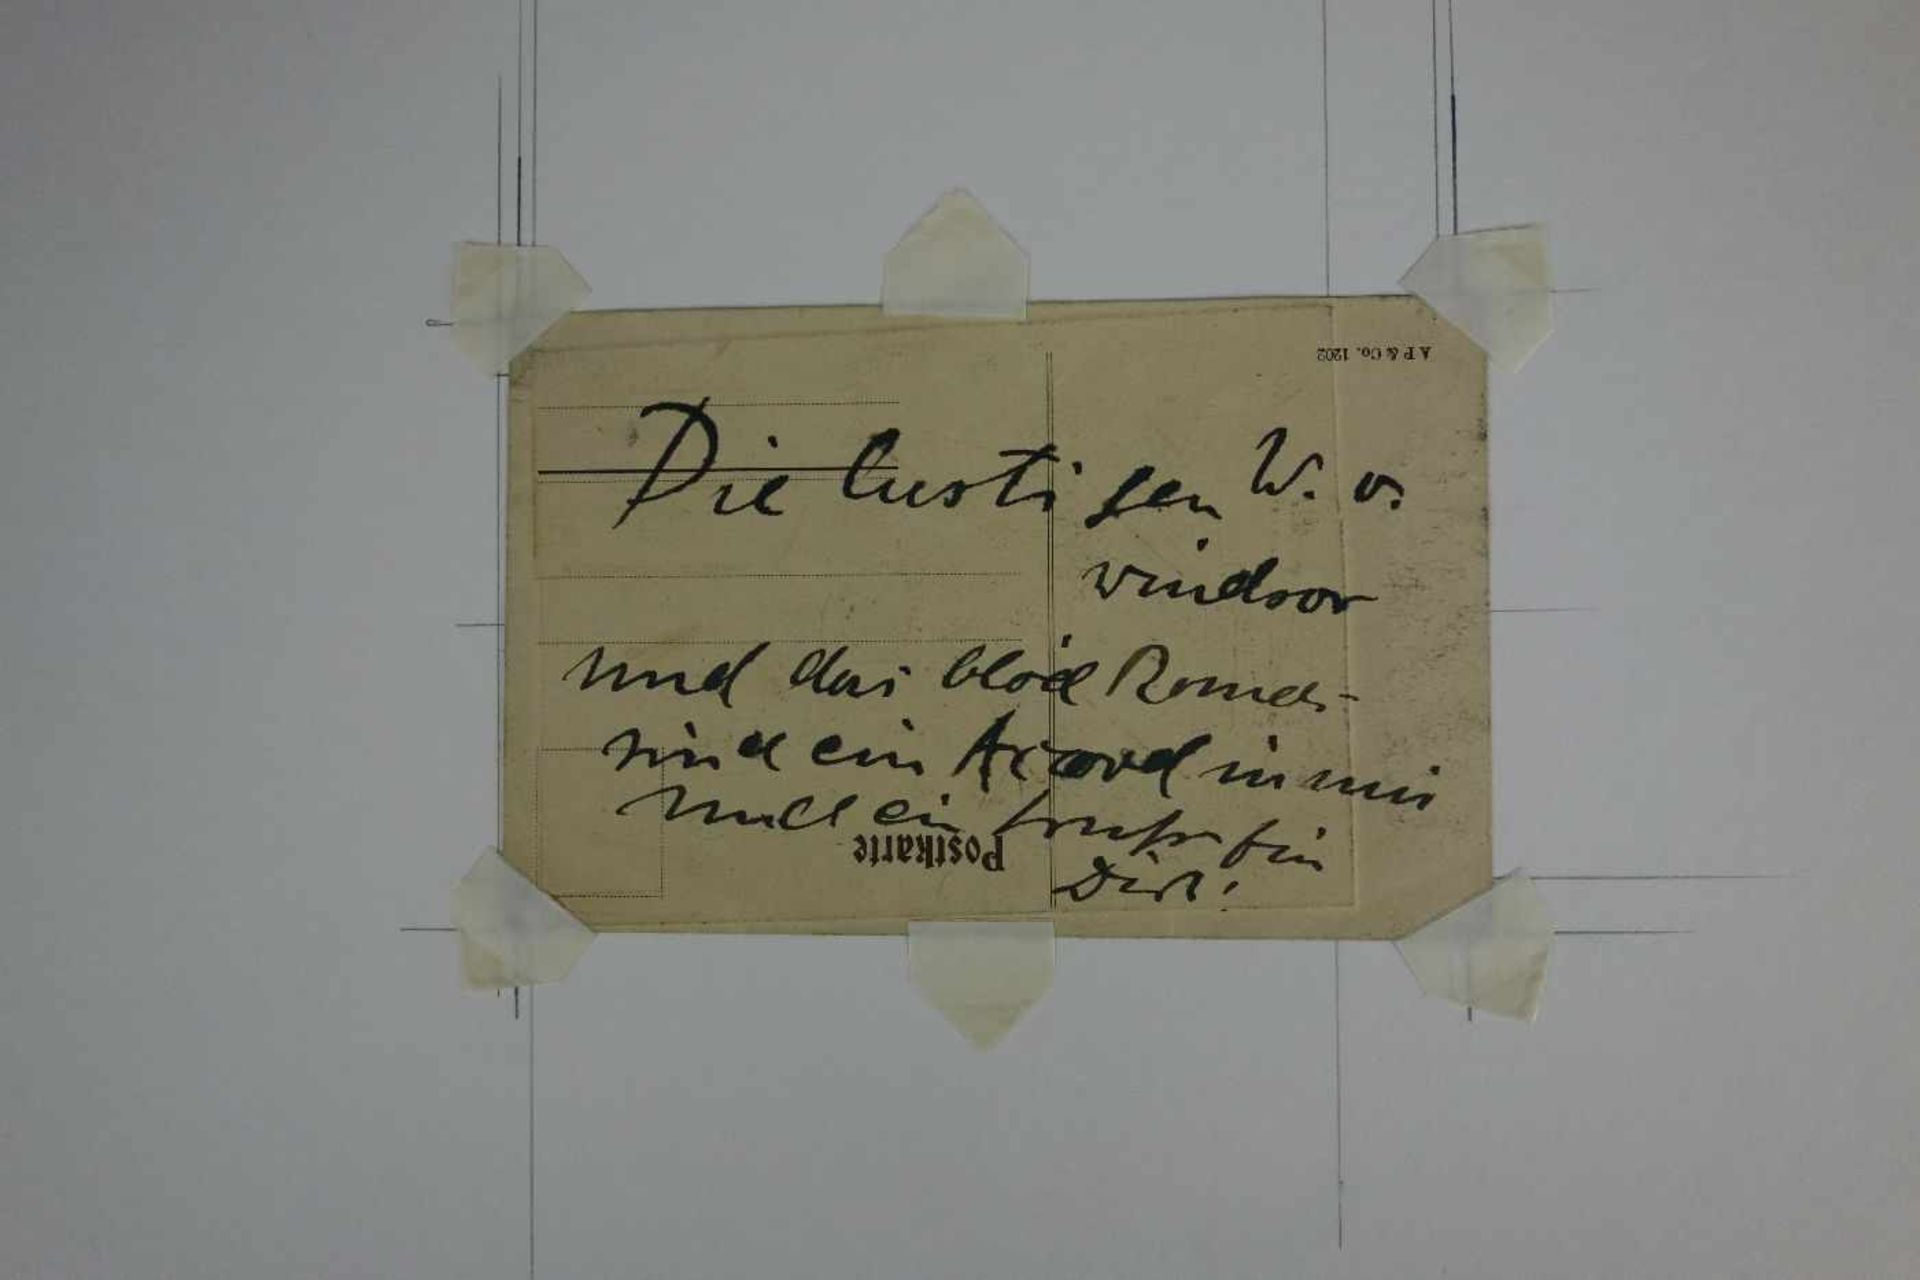 Die lustigen W. v.
Windsor
und das blöde
sind ein Accord in mir
und ein für
Dich!
Postkarte
A P & Co. 1202